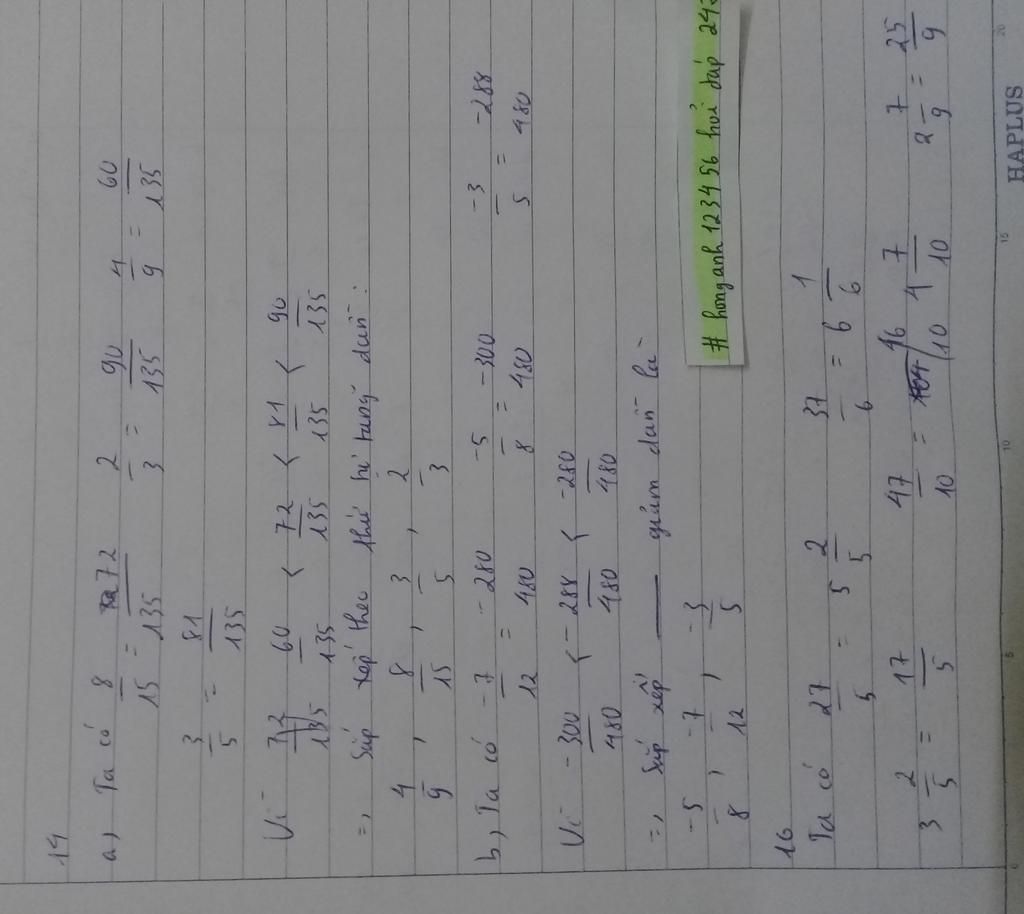 14
a, Ta có 8/15 = 72/135 2/3 = 90/135 4/9 = 60/135
3/5 = 81/135
Vì 60/135 < 72/135 < 81/135 < 90/135
=, Sắp xếp theo thứ tự tăng dần :
4/9 , 8/15 , 3/5 , 2/3
b, Ta có -7/12 = -280/480 -5/8 = -300/480 -3/5 = -288/480
Vì -300/480 < -288/480 < -280/480
=, Sắp xếp —— giảm dần là
-5/8 , -7/12 , -3/5
# honganh123456 hoi dap 247
16
Ta có 27/5 = 5 2/5 37/6 = 6 1/6
3 2/5 = 17/5 47/10 = 4 7/10 2 7/9 = 25/9
HAPLUS
0 5 10 15 20